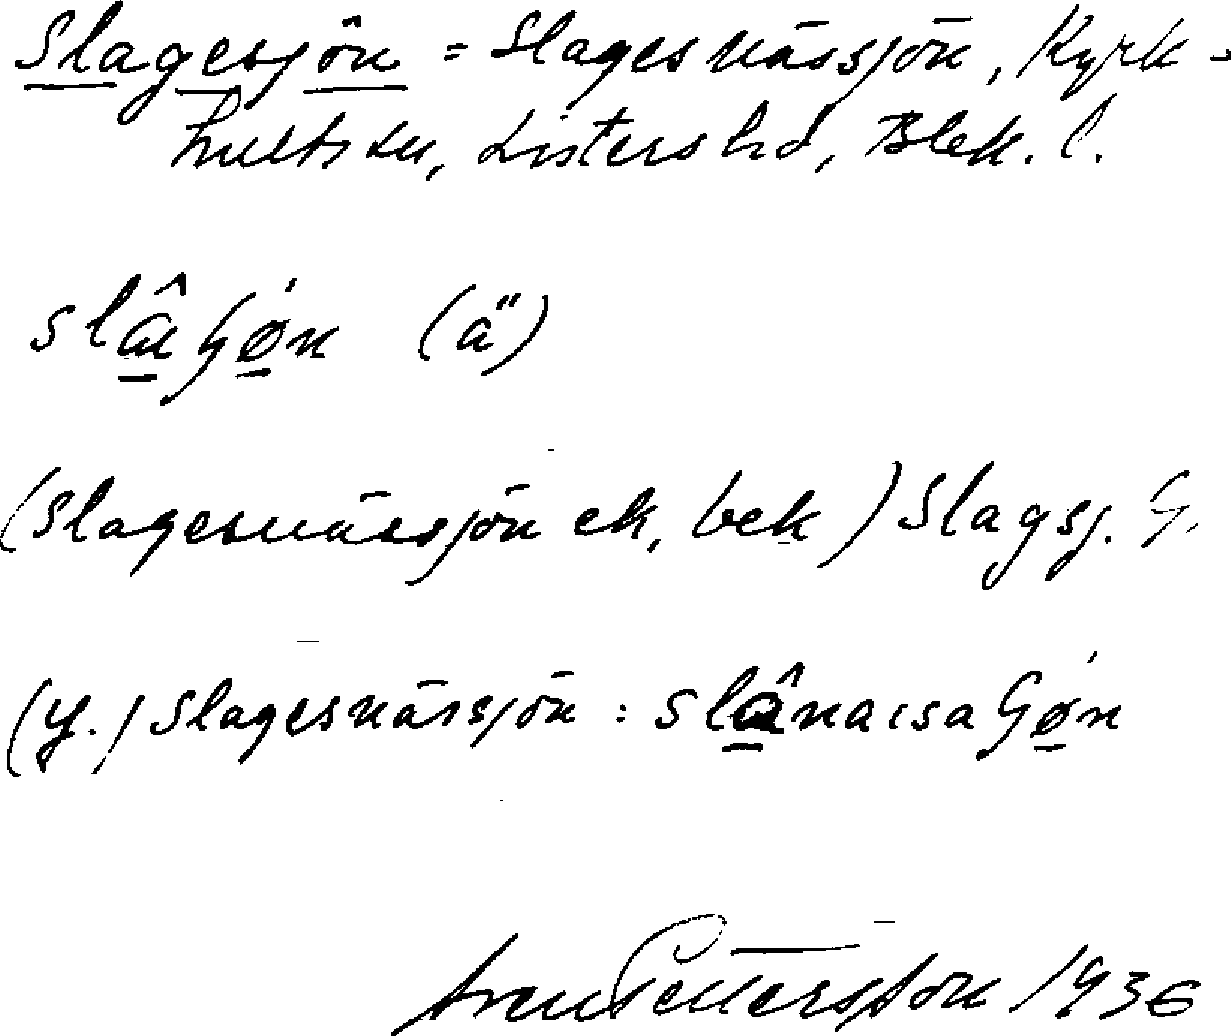 Slagesjön = Slagesnässjön, Kyrk-
hults sn, Listers hd, Blek. l.
(ä)
(Slagesnässjön ek, bek) Slagsj. G.
(y.) Slagesnässjön :
Pettersson 1936